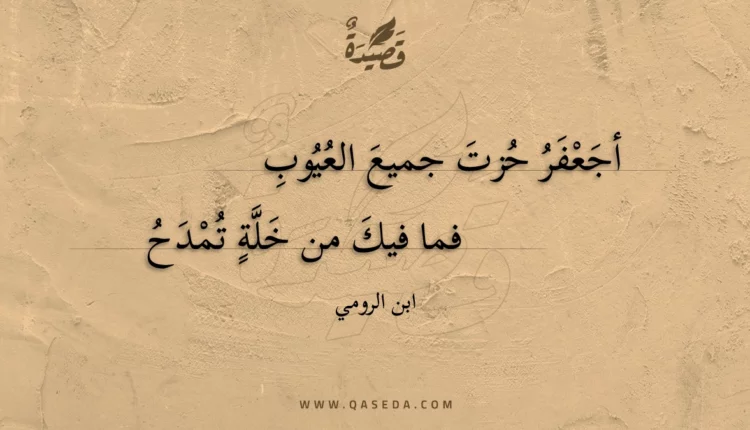 قَصِيدَةٌ
أجَعْفَرُ حُزتَ جميعَ العُيُوبِ
فما فيكَ من خَلَّةٍ تُمْدَحُ
ابن الرومي
WWW.QASEDA.COM